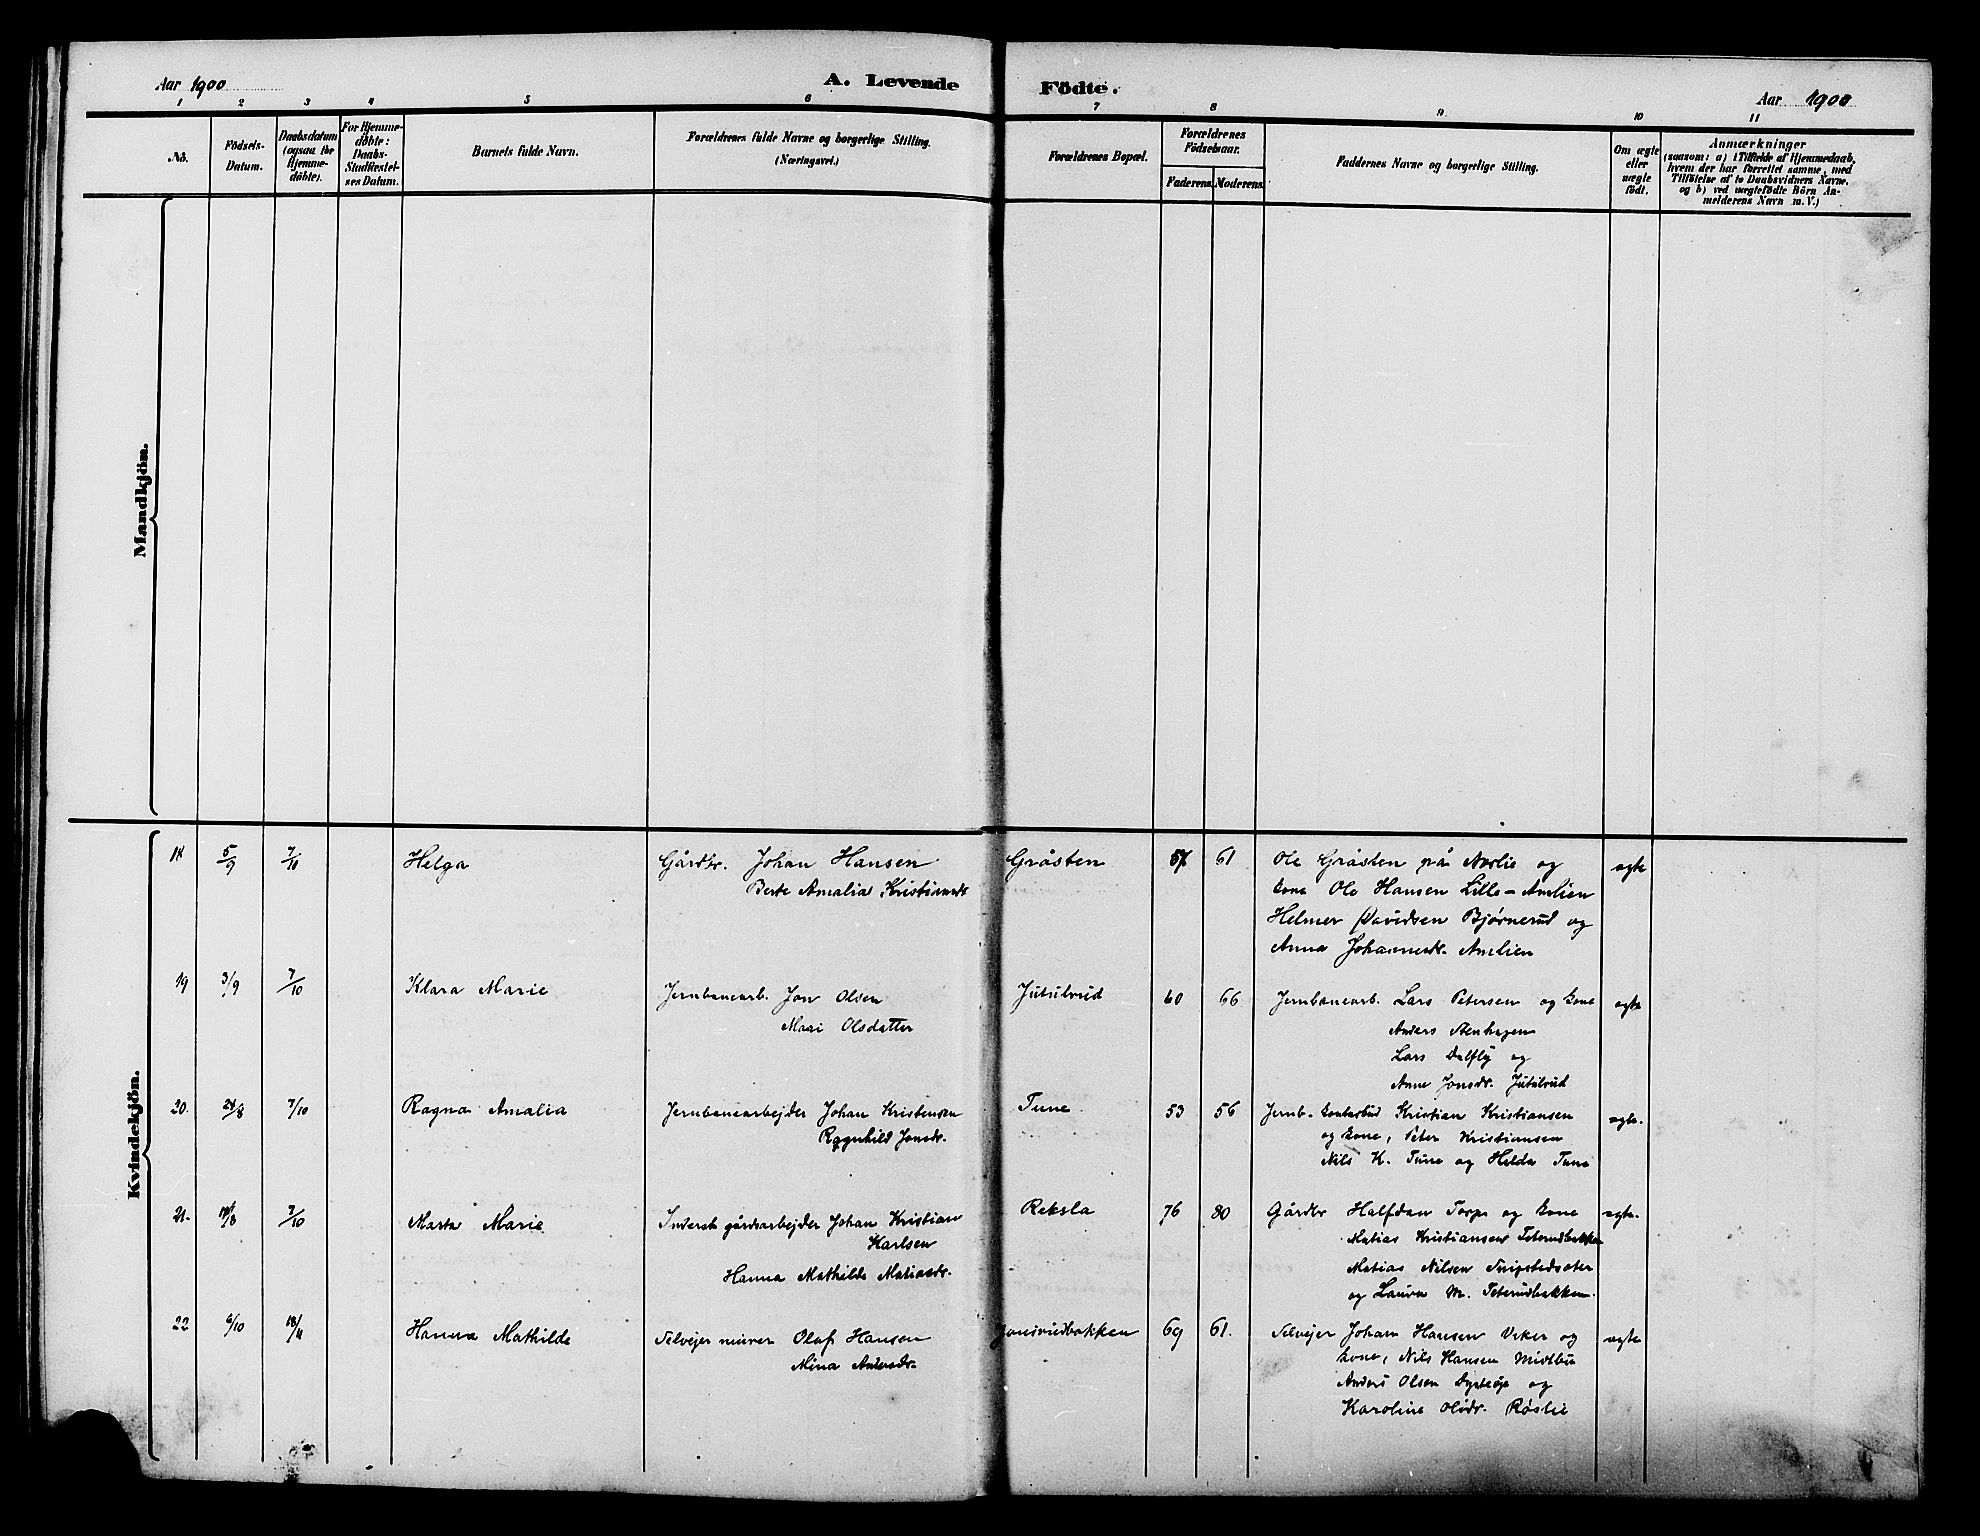 Aar 1900
A. Levende Födte.
Aar 1900
1 2 3 4 5 6 7 8 9 10 11
No.
Födsels-Datum.
Daabsdatum (ogsaa for Hjemme-döbte).
For Hjemme-döbte: Daabs-Stadfæstel-ses Datum.
Barnets fulde Navn.
Forældrenes fulde Navne og borgerlige Stilling.
(Næringsvei.)
Forældrenes Bopæl.
Forældrenes Födselsaar.
Faderens. Moderens.
Faddernes Navne og borgerlige Stilling.
Om ægte eller uægte födt.
Anmærkninger
(saasom: a) i Tilfælde af Hjemmedaab,
hvem der har forrettet samme, med
Tilföielse af to Daabsvidners Navne,
og b) ved uægtefödte Börn An-
melderens Navn m. V.)
Mandkjön.
Kvindekjön.
18 5/9 7/10 Helga Gårdbr. Johan Hansen Gråsten 57 61 Ole Gråsten på Nærlie og ægte
Berte Amalia Kristiansdr kone Ole Hansen Lille-Amlien
Helmer Davidsen Bjørnerud og
Anna Johannesdr. Amlien
19 3/9 7/10 Klara Marie Jernbanearb. Jon Olsen Jutulrud 60 66 Jernbanearb. Lars Petersen og kone ægte
Mari Olsdatter Anders Stenhagen
Lars Dalfly og
Anne Jonsdr. Jutulrud
20. 24/8 7/10 Ragna Amalia Jernbanearbejder Johan Kristensen Tune 53 56 Jernb. kontorbud Kristian Kristiansen ægte.
Ragnhild Jonsdr. og kone, Peter Kristiansen
Nils K. Tune og Helda Tune
21. 7/10 Marta Marie Inderst gårdsarbejder Johan Kristian Reksla 76 80 Gårdbr Halfdan Torp og kone ægte.
Karlsen Matias Kristiansen Teterudbakken
Hanna Mathilde Matiasdr. Matias Nilsen
og Laura M. Teterudbakken.
22 6/10 18/11 Hanna Mathilde Selvejer murer Olaf Hansen Jonsrudbakken 69 61. Selvejer Johan Hansen Viker og ægte
Mina Andersdr. kone, Nils Hansen Midtbø
Anders Olsen og
Karoline Olsdr. Røslie